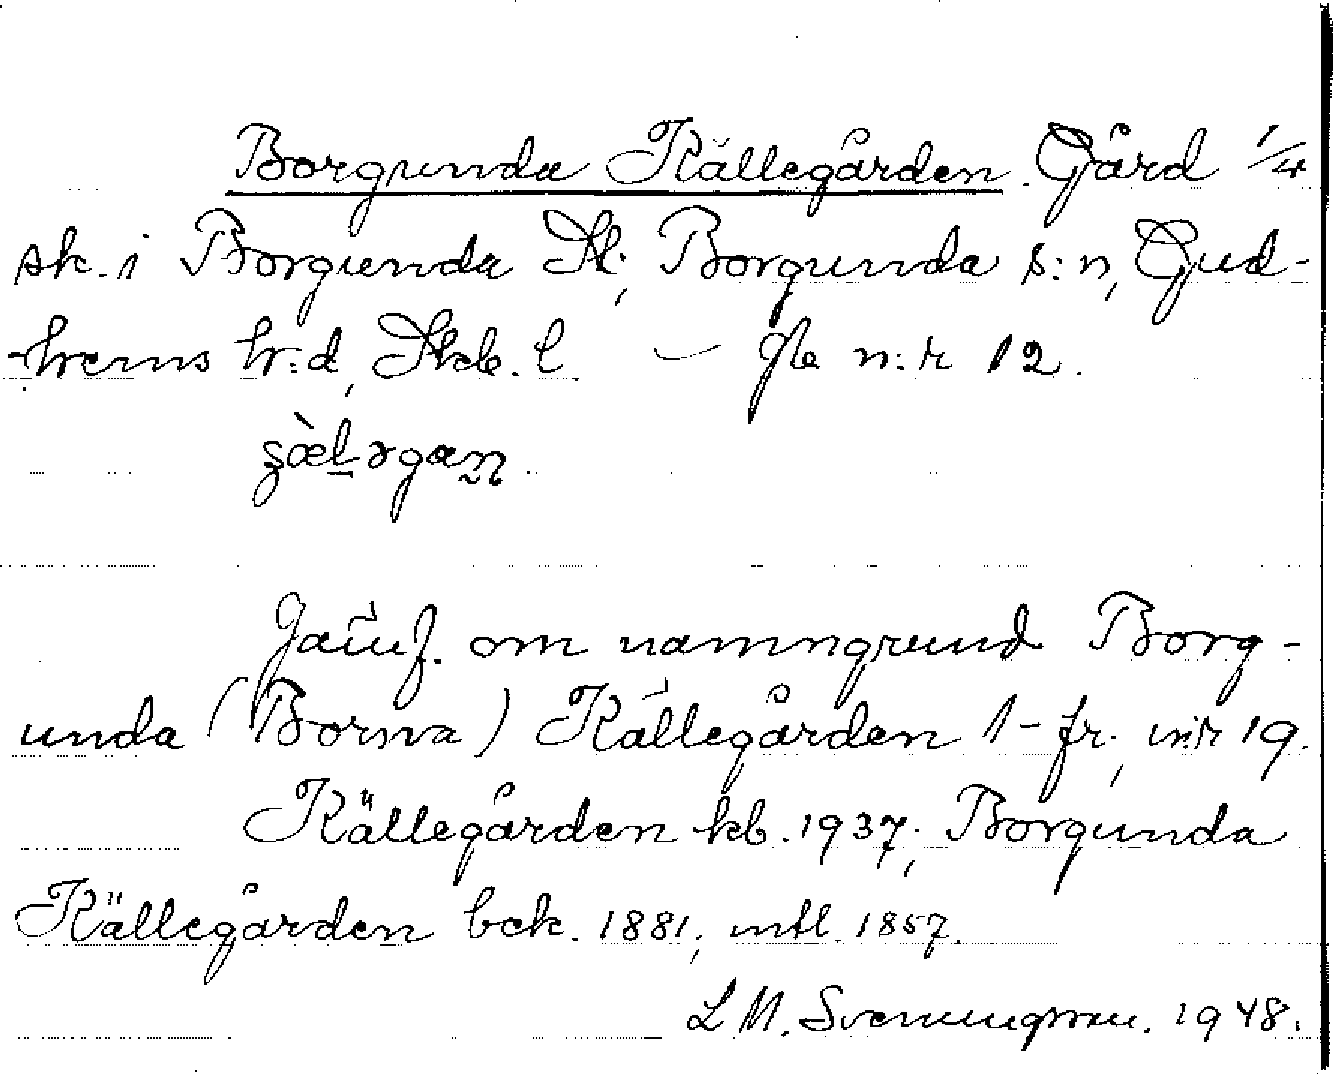 Borgunda Källegården. Gård 1/4
sk. i Borgunda Sk; Borgunda s:n, Gud-
-hems h:d, Skb. l. — gla n:r 12.
Jämf. om namngrund Borg-
unda (Borna) Källegården 1- fr., n:r 19.
Källegården kb. 1937; Borgunda
Källegården bek. 1881; mtl. 1857.
L M. Svenungsson. 1948.